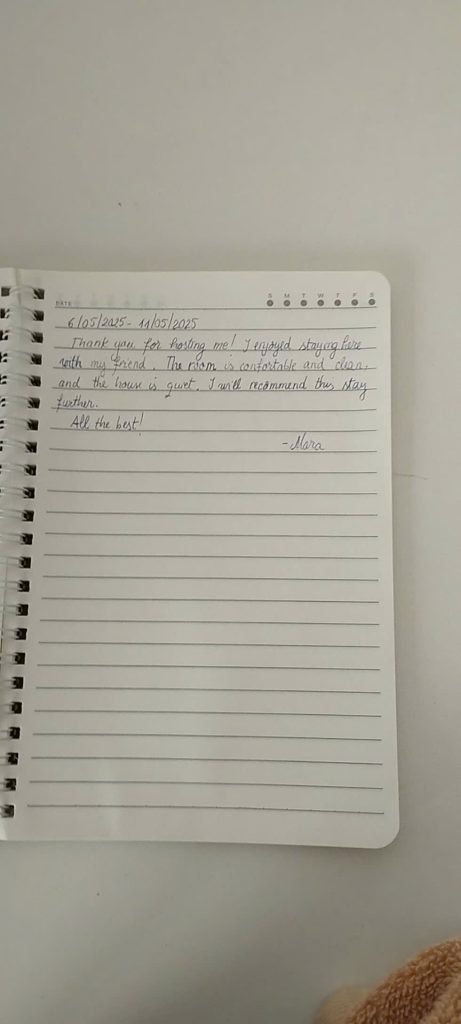 DATE S M T W T F S
6/05/2025 - 11/05/2025
Thank you for hosting me! I enjoyed staying here
with my friend. The room is confortable and clean,
and the house is quiet. I will recommend this stay
further.
All the best!
- Mara